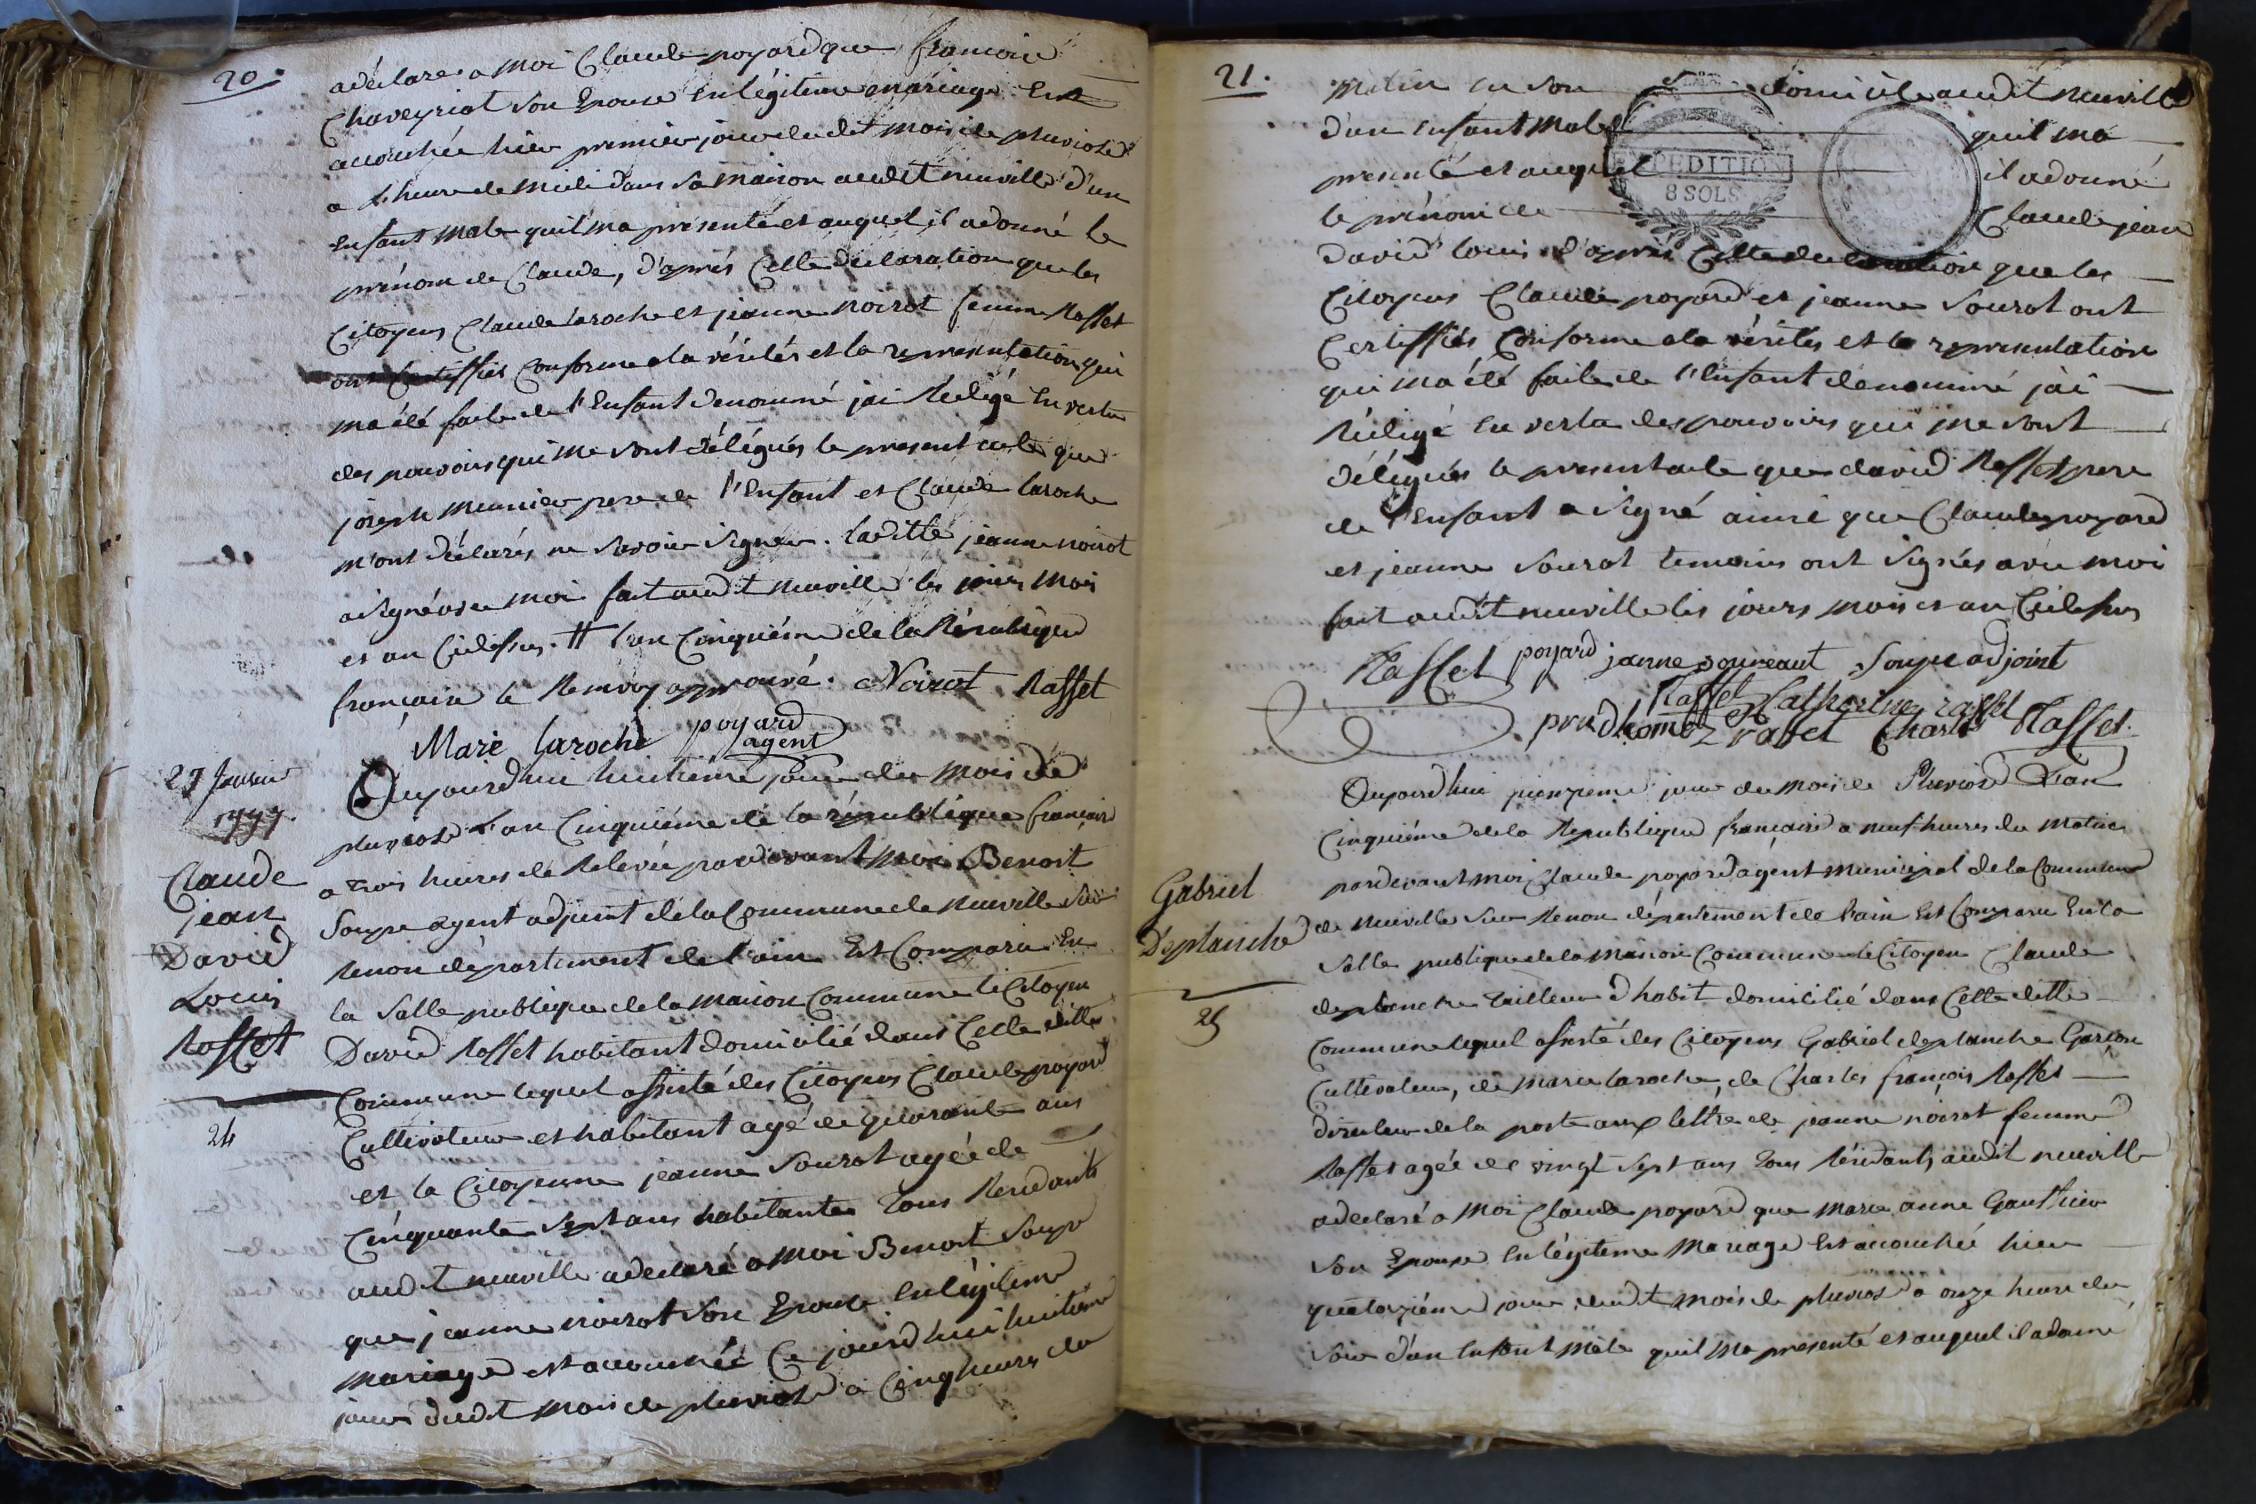 20.
a déclaré a moi Claude poyard que francoise
Chaveyriat son Epouse en légitime mariage Est
accouchée hier premier jour dudit mois de pluviose
a l'heure de midi dans sa maison audit neuville d'un
Enfant male quil ma présenté et auquel il a donné le
prénom de Claude, d'après Cette déclaration que les
Citoyens Claude laroche et jeanne noirot femme Rasset
ont Certiffiés Conforme a la vérités et la représentation qui
ma été faite de l'Enfant denommé jai Rédigé En vertu
des pouvoirs qui me sont délégués le present acte que
joseph meunier pere de l'Enfant et Claude laroche
m'ont déclarés ne savoir signer. laditte jeanne noirot
a signé avec moi fait audit neuville les jours mois
et an Cidessus. # l'an Cinquiéme de la République
française le Renvoy approuvé. Noirot Rasset
Marie laroche poyard
agent
27 Janvier
1797.
Claude
jean
David
Louis
Rasset
24
Aujourdhui huitiéme jour du mois de
pluviose l'an Cinquiéme de la république française
a trois heures de Relevée pardevant moi Benoit
Soupe agent adjoint de la Commune de neuville sur
Renon département de l'ain Est Comparu En
la Salle publique de la maison Commune le Citoyen
David Rasset habitant domicilié dans Cette ditte
Commune lequel assisté des Citoyens Claude poyard
Cultivateur et habitant agé de quarante ans
et la Citoyenne jeanne Sourot agée de
Cinquante sept ans habitante Tous Residants
audit neuville a declaré a moi Benoit Soupe
que jeanne noirot son Epouse En légitime
mariage est accouchée Ce jourd'hui huitiéme
jour dudit mois de pluviose a Cinq heures du
21.
Matin en son domicile audit neuville
d'un Enfant Male quil ma
presenté et auquel il a donné
le prénom de Claude jean
david louis d'après Cette declaration que les
Citoyens Claude poyard et jeanne Sourot ont
Certiffiés Conforme a la vérités et la representation
qui ma été faite de l'Enfant dénommé jai
Rédigé En vertu des pouvoirs qui me sont
délégués le present acte que david Rasset pere
de l'Enfant a signé ainsi que Claude poyard
et jeanne Sourot temoins ont signés avec moi
fait audit neuville les jours mois et an Cidessus
EXPEDITION
8 SOLS
Rasset poyard janne soureaut Soupe adjoint
Rasset Catherine rasset
prudhome rasset Charle Rasset
Gabriel
Deplanche
25
Aujourdhui quinzieme jour du mois de Pluviose L'an
Cinquiéme de la Republique française a neuf heures du Matin
pardevant moi Claude poyard agent municipal de la Commune
de neuville sur Renon département de l'ain Est Comparu En la
Salle publique de la maison Commune le Citoyen Claude
deplanche Tailleur d'habit domicilié dans Cette ditte
Commune lequel assisté des Citoyens Gabriel deplanche Garçon
Cultivateur, de marie laroche, de Charles françois Rasset
directeur de la poste aux lettre de jeanne noirot femme
Rasset agée de vingt sept ans Tous Résidants audit neuville
a declaré a moi Claude poyard que marie anne Gauthier
son Epouse En légitime Mariage Est accouchée hier
quatorziéme jour dudit mois de pluviose a onze heure du
soir d'un Enfant mâle quil ma présenté et auquel il a donné